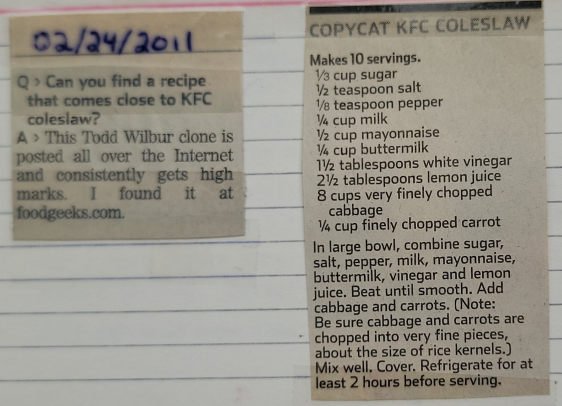 02/24/2011
Q > Can you find a recipe
that comes close to KFC
coleslaw?
A > This Todd Wilbur clone is
posted all over the Internet
and consistently gets high
marks. I found it at
foodgeeks.com.
COPYCAT KFC COLESLAW
Makes 10 servings.
1/3 cup sugar
1/2 teaspoon salt
1/8 teaspoon pepper
1/4 cup milk
1/2 cup mayonnaise
1/4 cup buttermilk
1 1/2 tablespoons white vinegar
2 1/2 tablespoons lemon juice
8 cups very finely chopped
cabbage
1/4 cup finely chopped carrot
In large bowl, combine sugar,
salt, pepper, milk, mayonnaise,
buttermilk, vinegar and lemon
juice. Beat until smooth. Add
cabbage and carrots. (Note:
Be sure cabbage and carrots are
chopped into very fine pieces,
about the size of rice kernels.)
Mix well. Cover. Refrigerate for at
least 2 hours before serving.